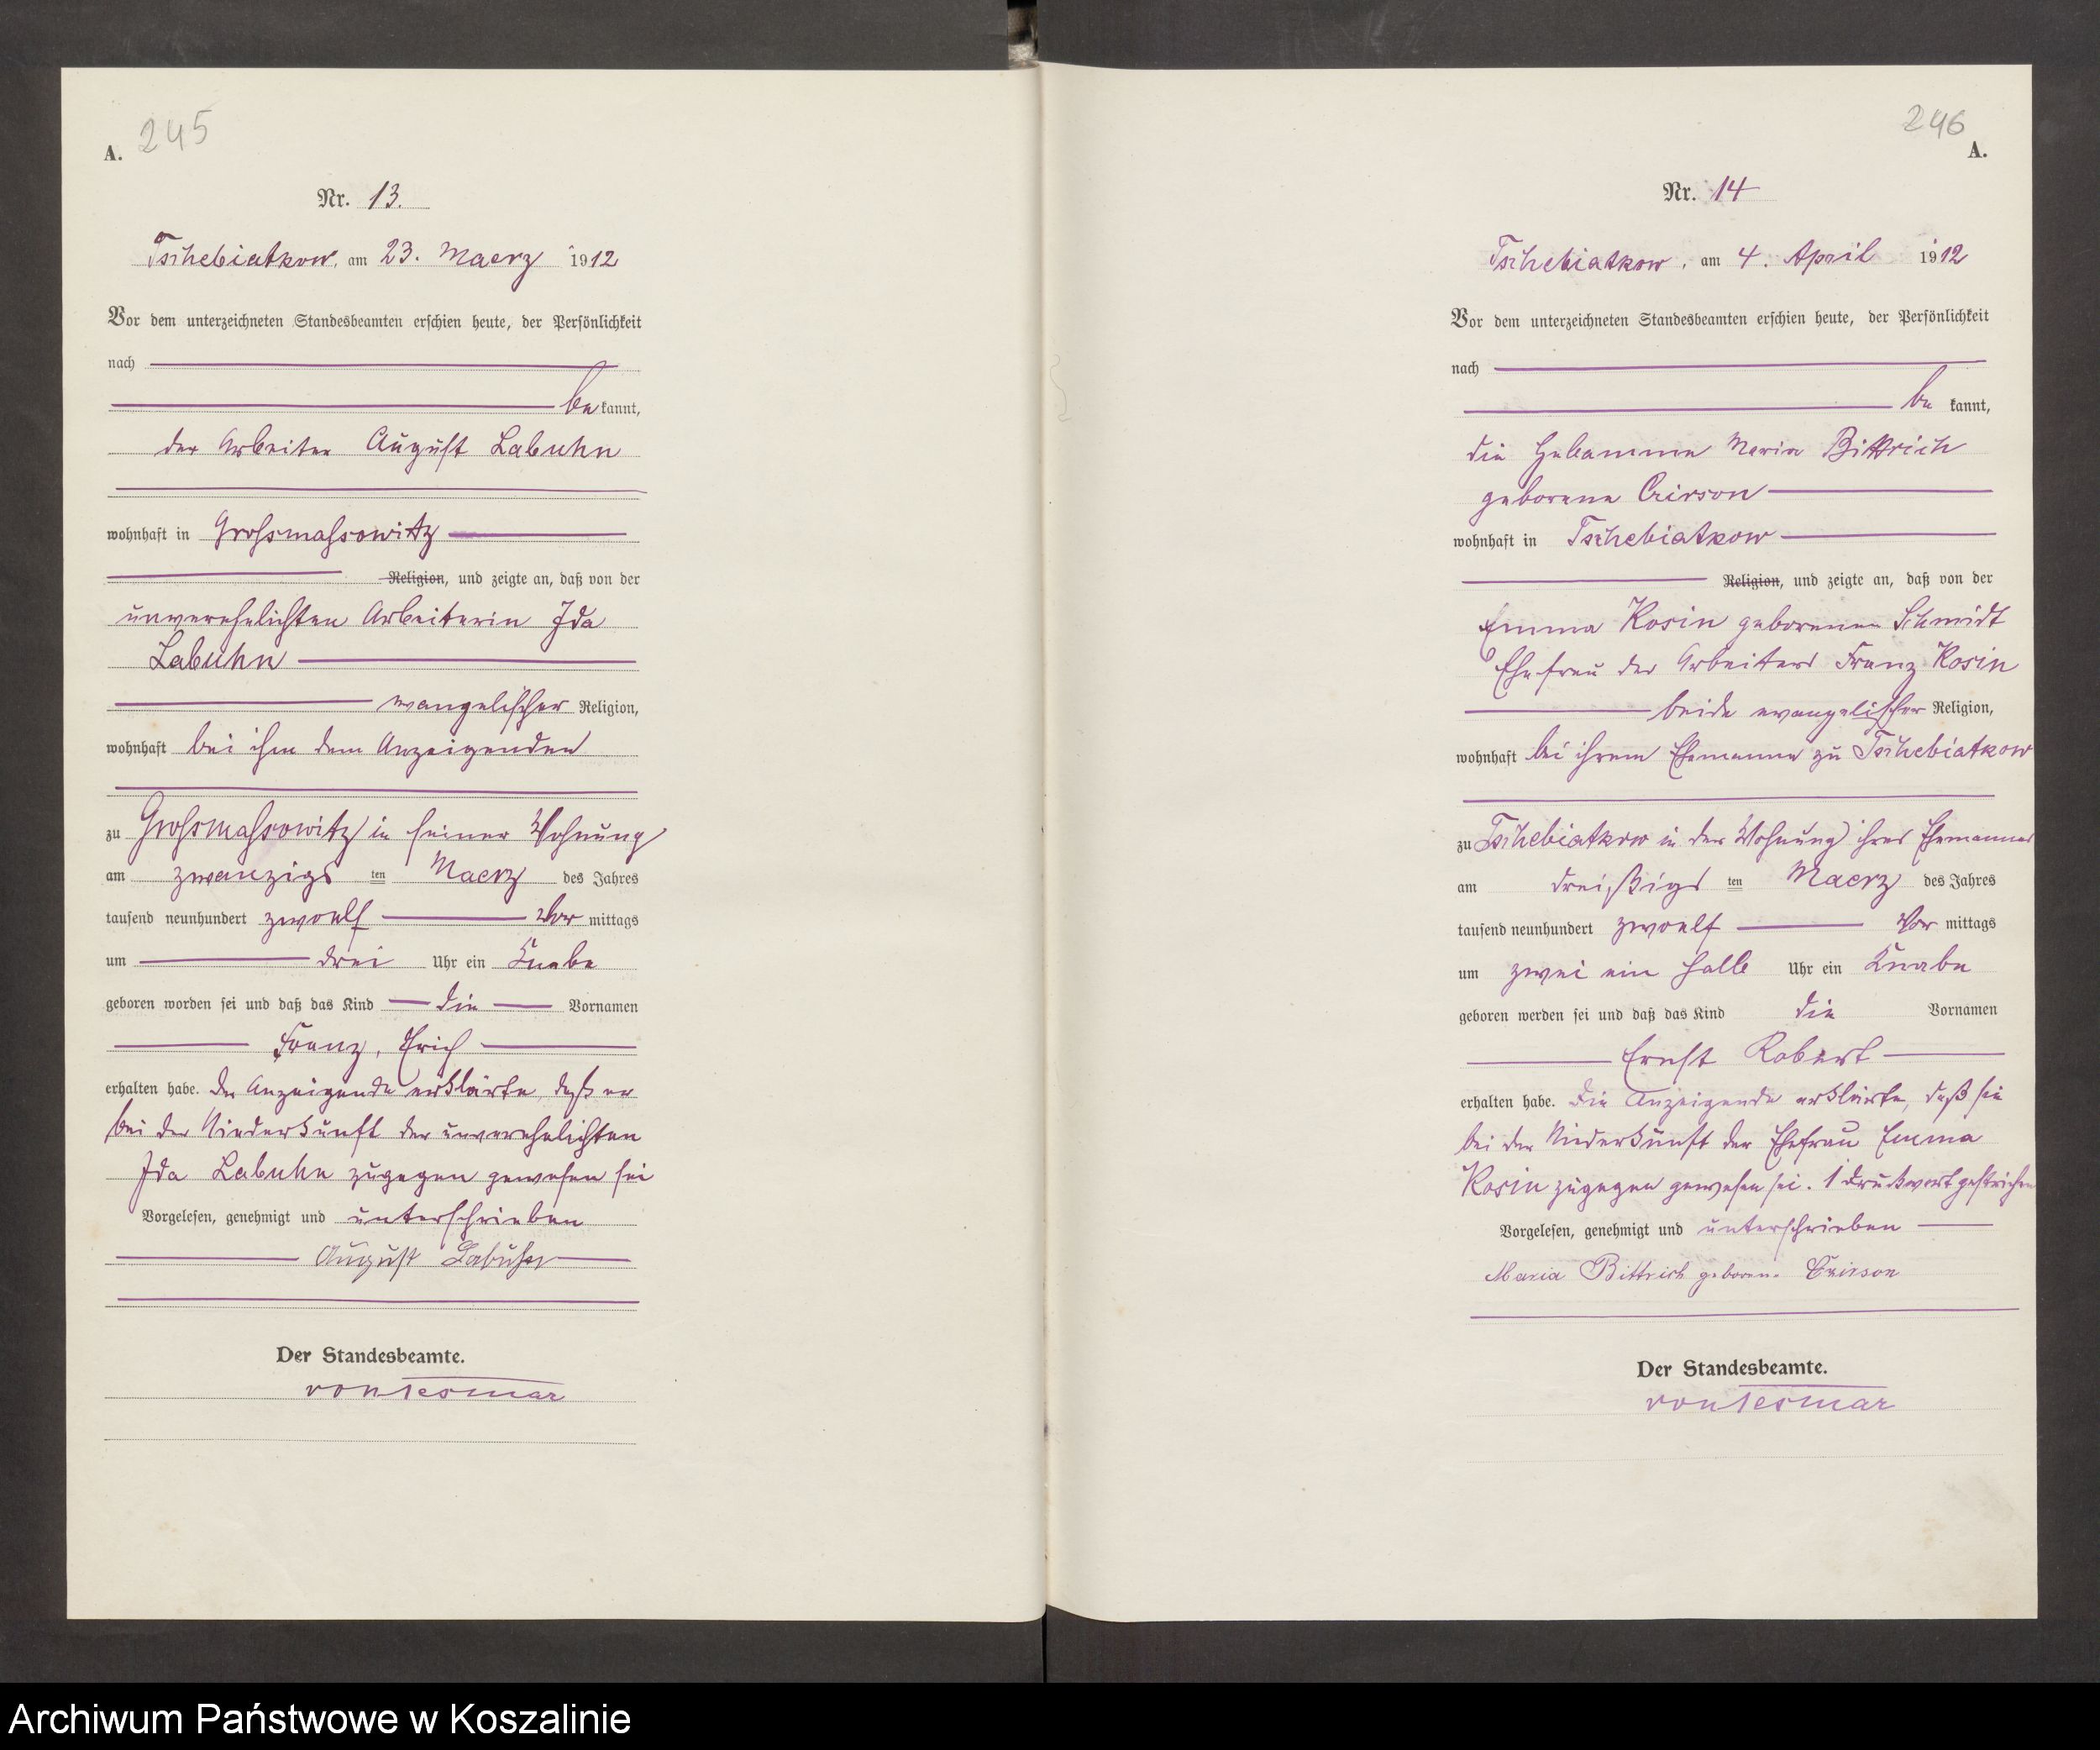 245
A.
Nr. 13.
Tschebiatkow, am 23. Maerz 1912
Vor dem unterzeichneten Standesbeamten erschien heute, der Persönlichkeit
nach
be kannt,
der Arbeiter August Labuhn
wohnhaft in Grossmassowitz
Religion, und zeigte an, daß von der
unverehelichten Arbeiterin Ida
Labuhn
evangelischer Religion,
wohnhaft bei ihm dem Anzeigenden
zu Grossmassowitz in seiner Wohnung
am zwanzigs ten Maerz des Jahres
tausend neunhundert zwoelf Vor mittags
um drei Uhr ein Knabe
geboren worden sei und daß das Kind die Vornamen
Franz, Erich
erhalten habe. Der Anzeigende erklärte, daß er
bei der Niederkunft der unverehelichten
Ida Labuhn zugegen gewesen sei
Vorgelesen, genehmigt und unterschrieben
August Labuhn
Der Standesbeamte.
von Tesmar
246
A.
Nr. 14
Tschebiatkow, am 4. April 1912
Vor dem unterzeichneten Standesbeamten erschien heute, der Persönlichkeit
nach
be kannt,
die Hebamme Maria Bittrich
geborene
wohnhaft in Tschebiatkow
Religion, und zeigte an, daß von der
Emma Kosin geborenen Schmidt
Ehefrau des Arbeiters Franz Kosin
beide evangelischer Religion,
wohnhaft bei ihrem Ehemanne zu Tschebiatkow
zu Tschebiatkow in der Wohnung ihres Ehemannes
am dreißigs ten Maerz des Jahres
tausend neunhundert zwoelf Vor mittags
um zwei ein halb Uhr ein Knabe
geboren werden sei und daß das Kind die Vornamen
Ernst Robert
erhalten habe. Die Anzeigende erklärte, daß sie
bei der Niederkunft der Ehefrau Emma
Kosin zugegen gewesen sei. 1 Druckwort gestrichen
Vorgelesen, genehmigt und unterschrieben
Maria Bittrich geboren.
Der Standesbeamte.
von Tesmar
Archiwum Państwowe w Koszalinie